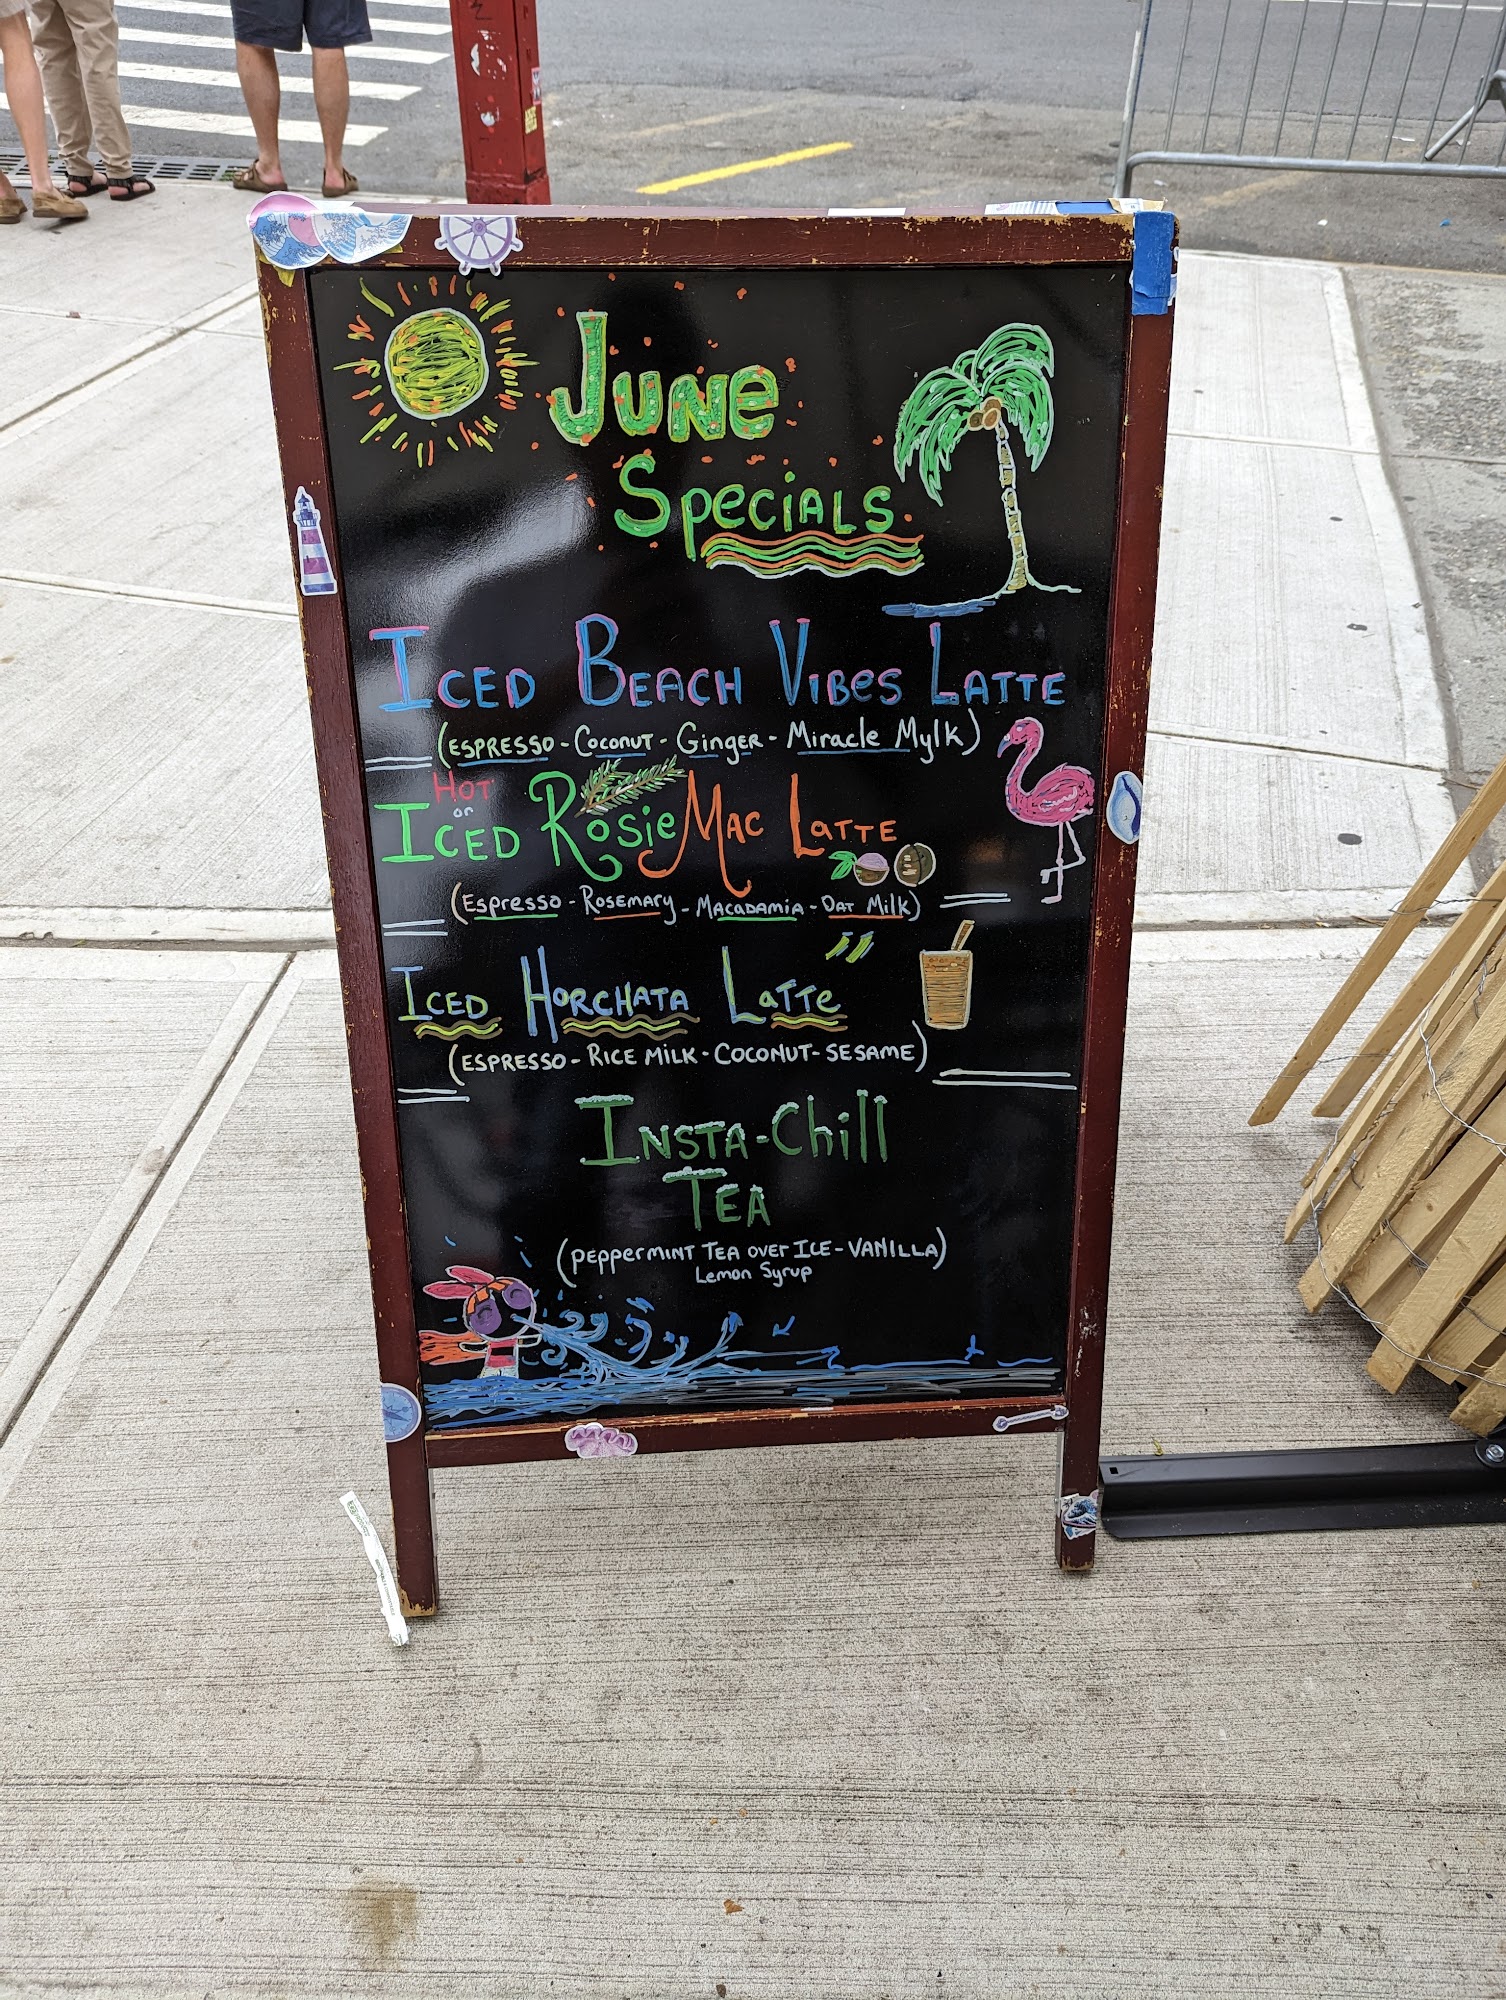 June
Specials
Iced Beach Vibes Latte
(Espresso - Coconut - Ginger - Miracle Mylk)
Hot
or
Iced Rosie Mac Latte
(Espresso - Rosemary - Macadamia - Oat Milk)
Iced Horchata Latte
(Espresso - Rice Milk - Coconut - Sesame)
Insta-Chill
Tea
(Peppermint Tea over Ice - Vanilla)
Lemon Syrup